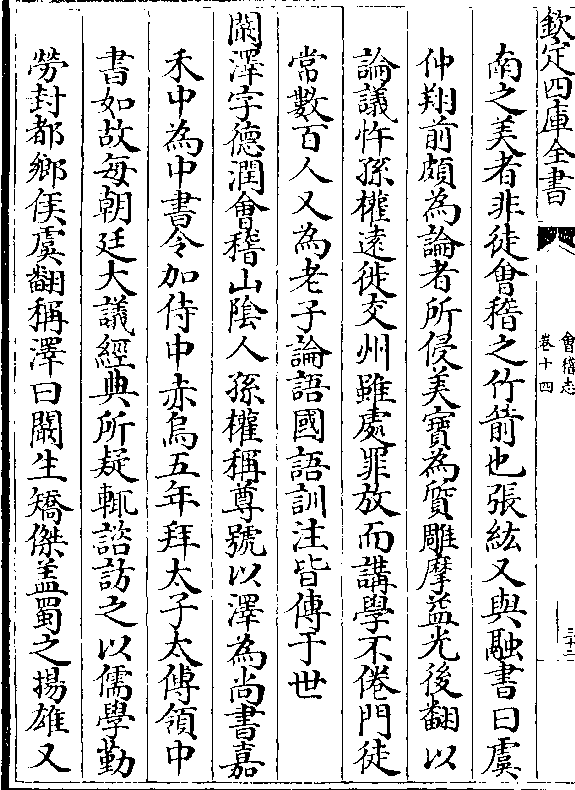 欽定四庫全書
會稽志
卷十四
三十二
南之美者非徒會稽之竹箭也張紘又與融書曰虞
仲翔前頗為論者所侵美寶為質雕摩益光後翻以
論議忤孫權遠徙交州雖處罪放而講學不倦門徒
常數百人又為老子論語國語訓注皆傳于世
闞澤字德潤會稽山陰人孫權稱尊號以澤為尚書嘉
禾中為中書令加侍中赤烏五年拜太子太傅領中
書如故每朝廷大議經典所疑輒諮訪之以儒學勤
勞封都鄉侯虞翻稱澤曰闞生矯傑盖蜀之揚雄又